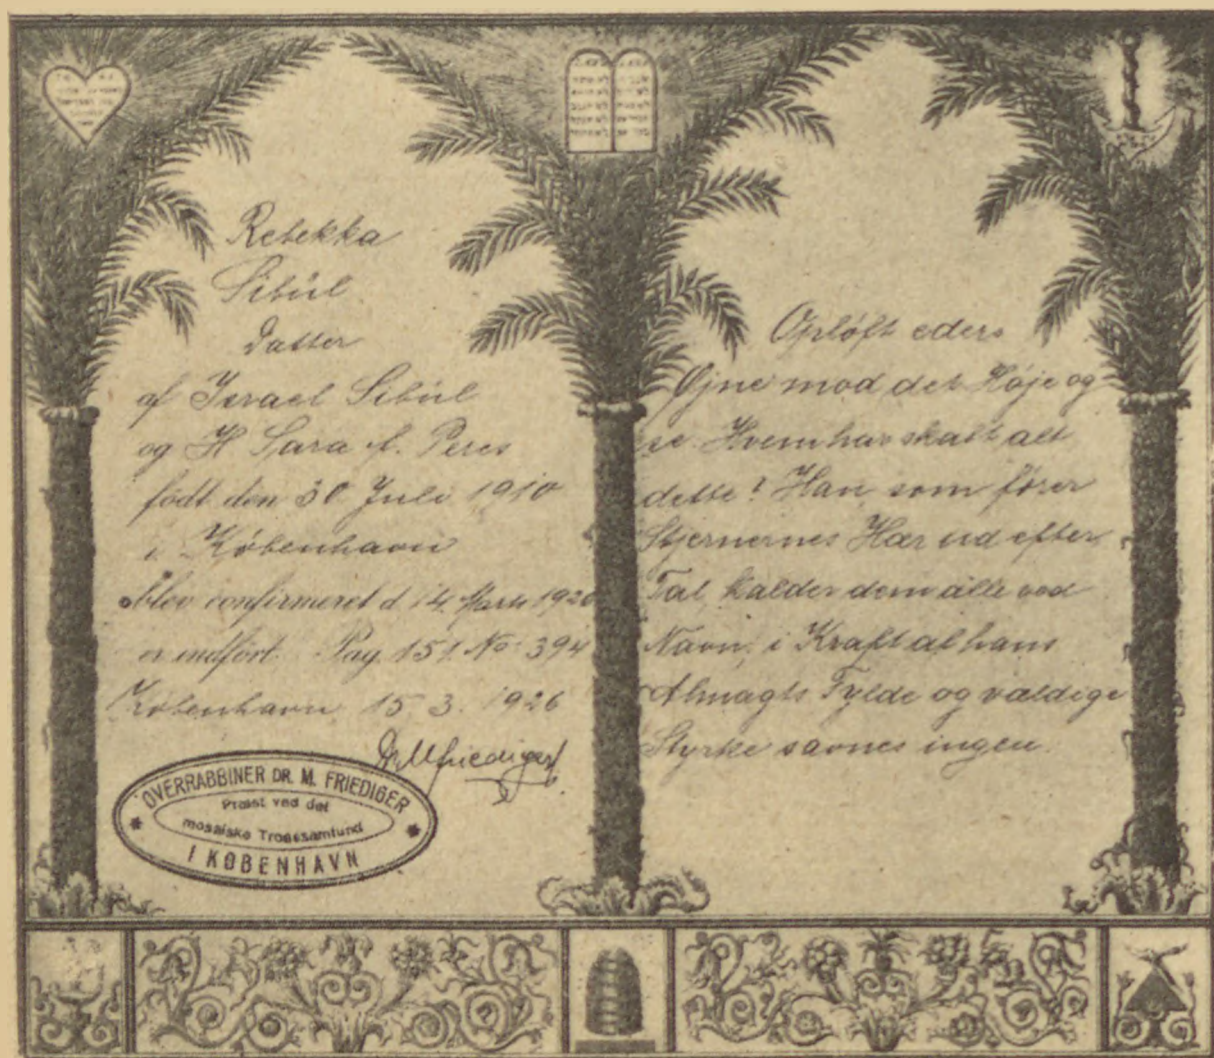 Rebekka
Sibül
Datter
af Israel Sibül
og H Sara f. Peres
født den 30 Juli 1910
i København
blev confirmeret d 14 Marts 1926
er indført Pag 151 No 394
København 15 3. 1926
Dr M Friediger
OVERRABBINER DR. M. FRIEDIGER
Præst ved det
mosaiske Troessamfund
I KØBENHAVN
Opløft eders
Øjne mod det Høje og
se. Hvem har skabt alt
dette? Han, som fører
Stjernernes Hær ud efter
Tal, kalder dem alle ved
Navn, i Kraft af hans
Almagts Fylde og vældige
Styrke savnes ingen.